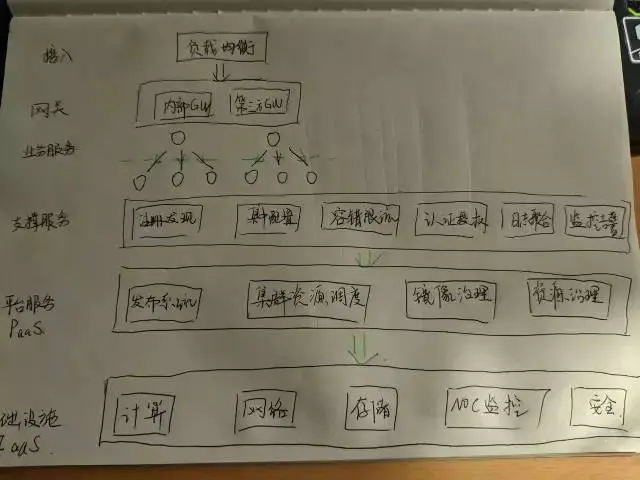 接入
负载均衡
网关
内部GW
第三方GW
业务服务
支撑服务
注册发现
集中配置
容错限流
认证授权
日志聚合
监控告警
平台服务
PaaS
发布系统
集群资源调度
镜像治理
资源治理
础设施
IaaS
计算
网络
存储
NOC监控
安全